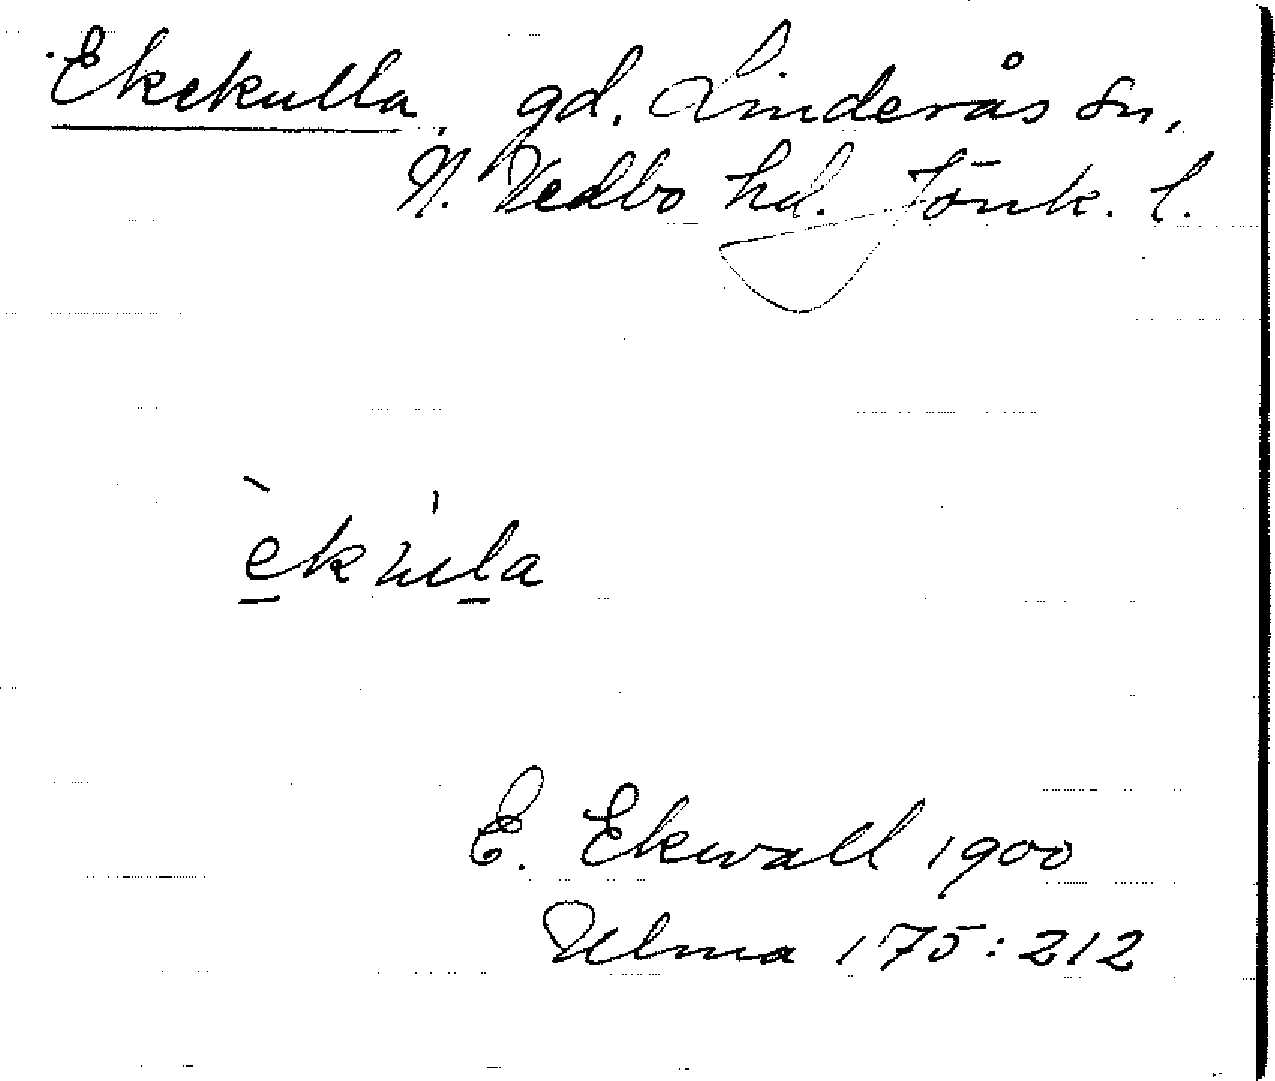 Ekekulla, gd. Linderås sn,
N. Vedbo hd. Jönk. l.
èkúla
E. Ekwall 1900
Ulma 175:212